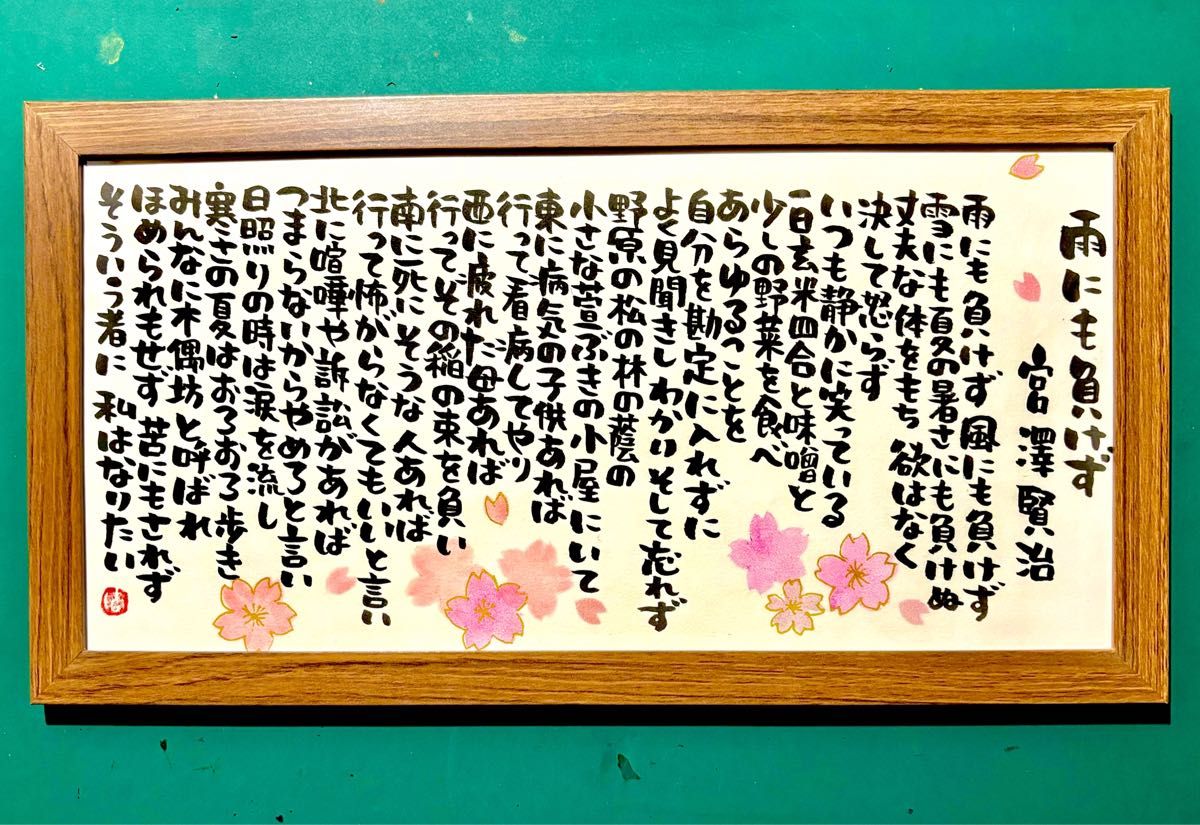 雨にも負けず
宮澤賢治
雨にも負けず 風にも負けず
雪にも夏の暑さにも負けぬ
丈夫な体をもち 欲はなく
決して怒らず
いつも静かに笑っている
一日玄米四合と味噌と
少しの野菜を食べ
あらゆることを
自分を勘定に入れずに
よく見聞きし わかり そして忘れず
野原の松の林の蔭の
小さな萱ぶきの小屋にいて
東に病気の子供あれば
行って看病してやり
西に疲れた母あれば
行ってその稲の束を負い
南に死にそうな人あれば
行って怖がらなくてもいいと言い
北に喧嘩や訴訟があれば
つまらないからやめろと言い
日照りの時は涙を流し
寒さの夏はおろおろ歩き
みんなに木偶坊と呼ばれ
ほめられもせず 苦にもされず
そういう者に 私はなりたい